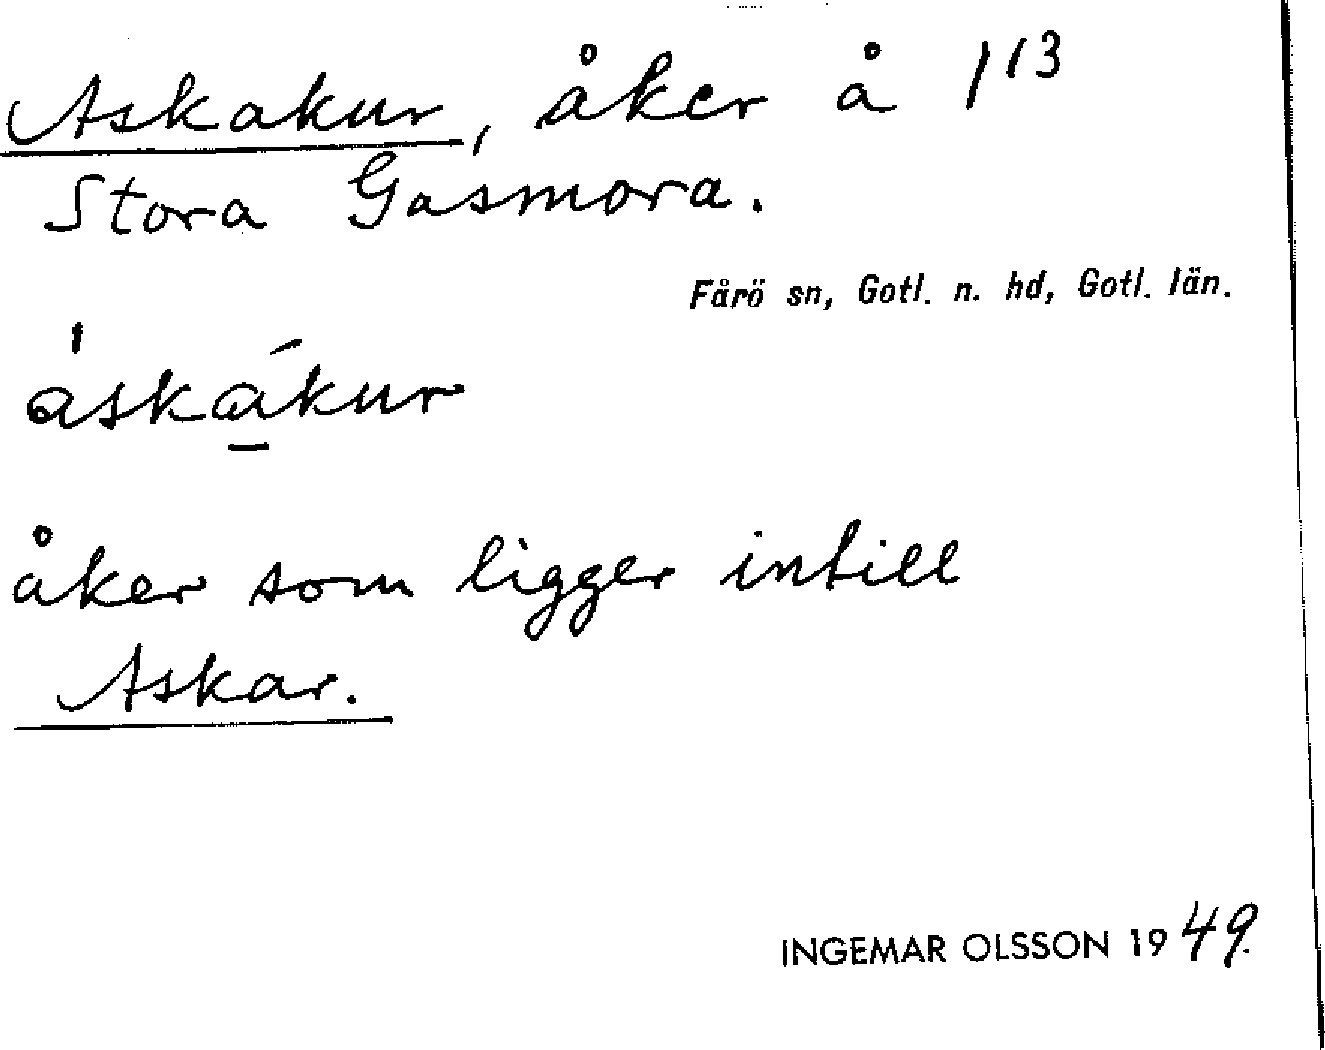 Askakur, åker å 113
Stora Gasmora.
Fårö sn, Gotl. n. hd, Gotl. län.
áskákur
åker som ligger intill
Askar.
INGEMAR OLSSON 1949.